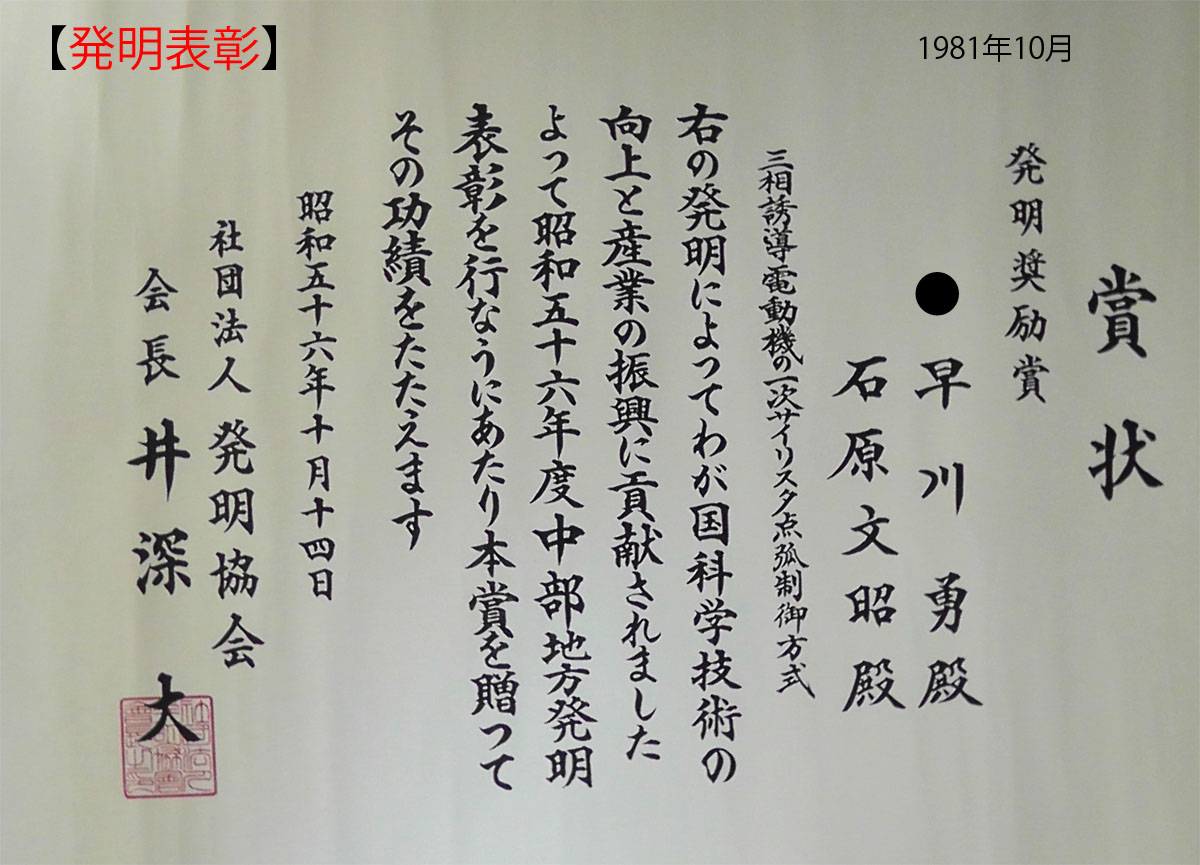 【発明表彰】
1981年10月
賞状
発明奨励賞
●早川勇殿
石原文昭殿
三相誘導電動機の一次サイリスタ点弧制御方式
右の発明によってわが国科学技術の
向上と産業の振興に貢献されました
よって昭和五十六年度中部地方発明
表彰を行なうにあたり本賞を贈って
その功績をたたえます
昭和五十六年十月十四日
社団法人発明協会
会長井深大